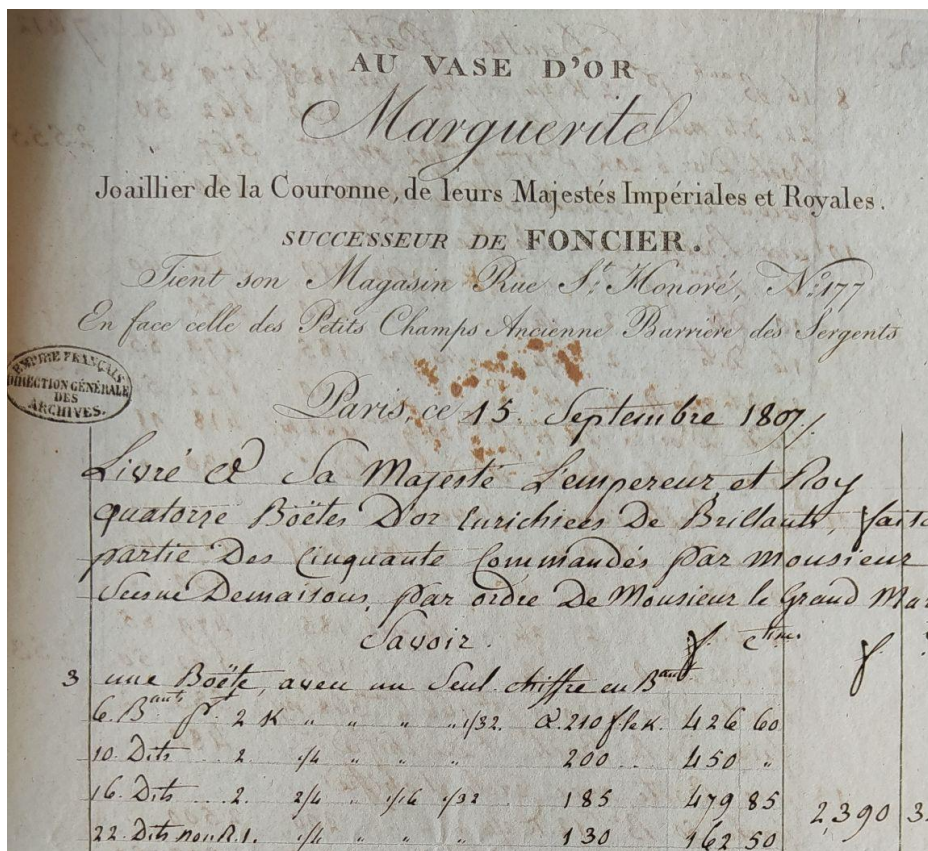 AU VASE D'OR
Marguerite
Joaillier de la Couronne, de leurs Majestés Impériales et Royales.
SUCCESSEUR DE FONCIER.
Tient son Magasin Rue St. Honoré, No. 177
En face celle des Petits Champs Ancienne Barrière des Sergents
EMPIRE FRANÇAIS
DIRECTION GÉNÉRALE
DES
ARCHIVES.
Paris, ce 15 Septembre 1807
Livré a Sa Majesté L'empereur et Roy
quatorze Boëtes D'or Enrichies De Brillants,
partie Des Cinquante Commandés par Monsieur
Demaisons, par ordre De Monsieur le Grand
Savoir. f. Cmes f
3 une Boëte, avec un Seul chiffre en Bants
6. Bants pt. 2 K " " " " 1/32. a. 210 f le K. 426 60
10. Dits 2 1/4 " " " 200 450 "
16. Dits 2. 2/4 " 1/16 1/32 185 479 85 2,390
22. Dits non R.1. 1/4 " " " 130 162 50